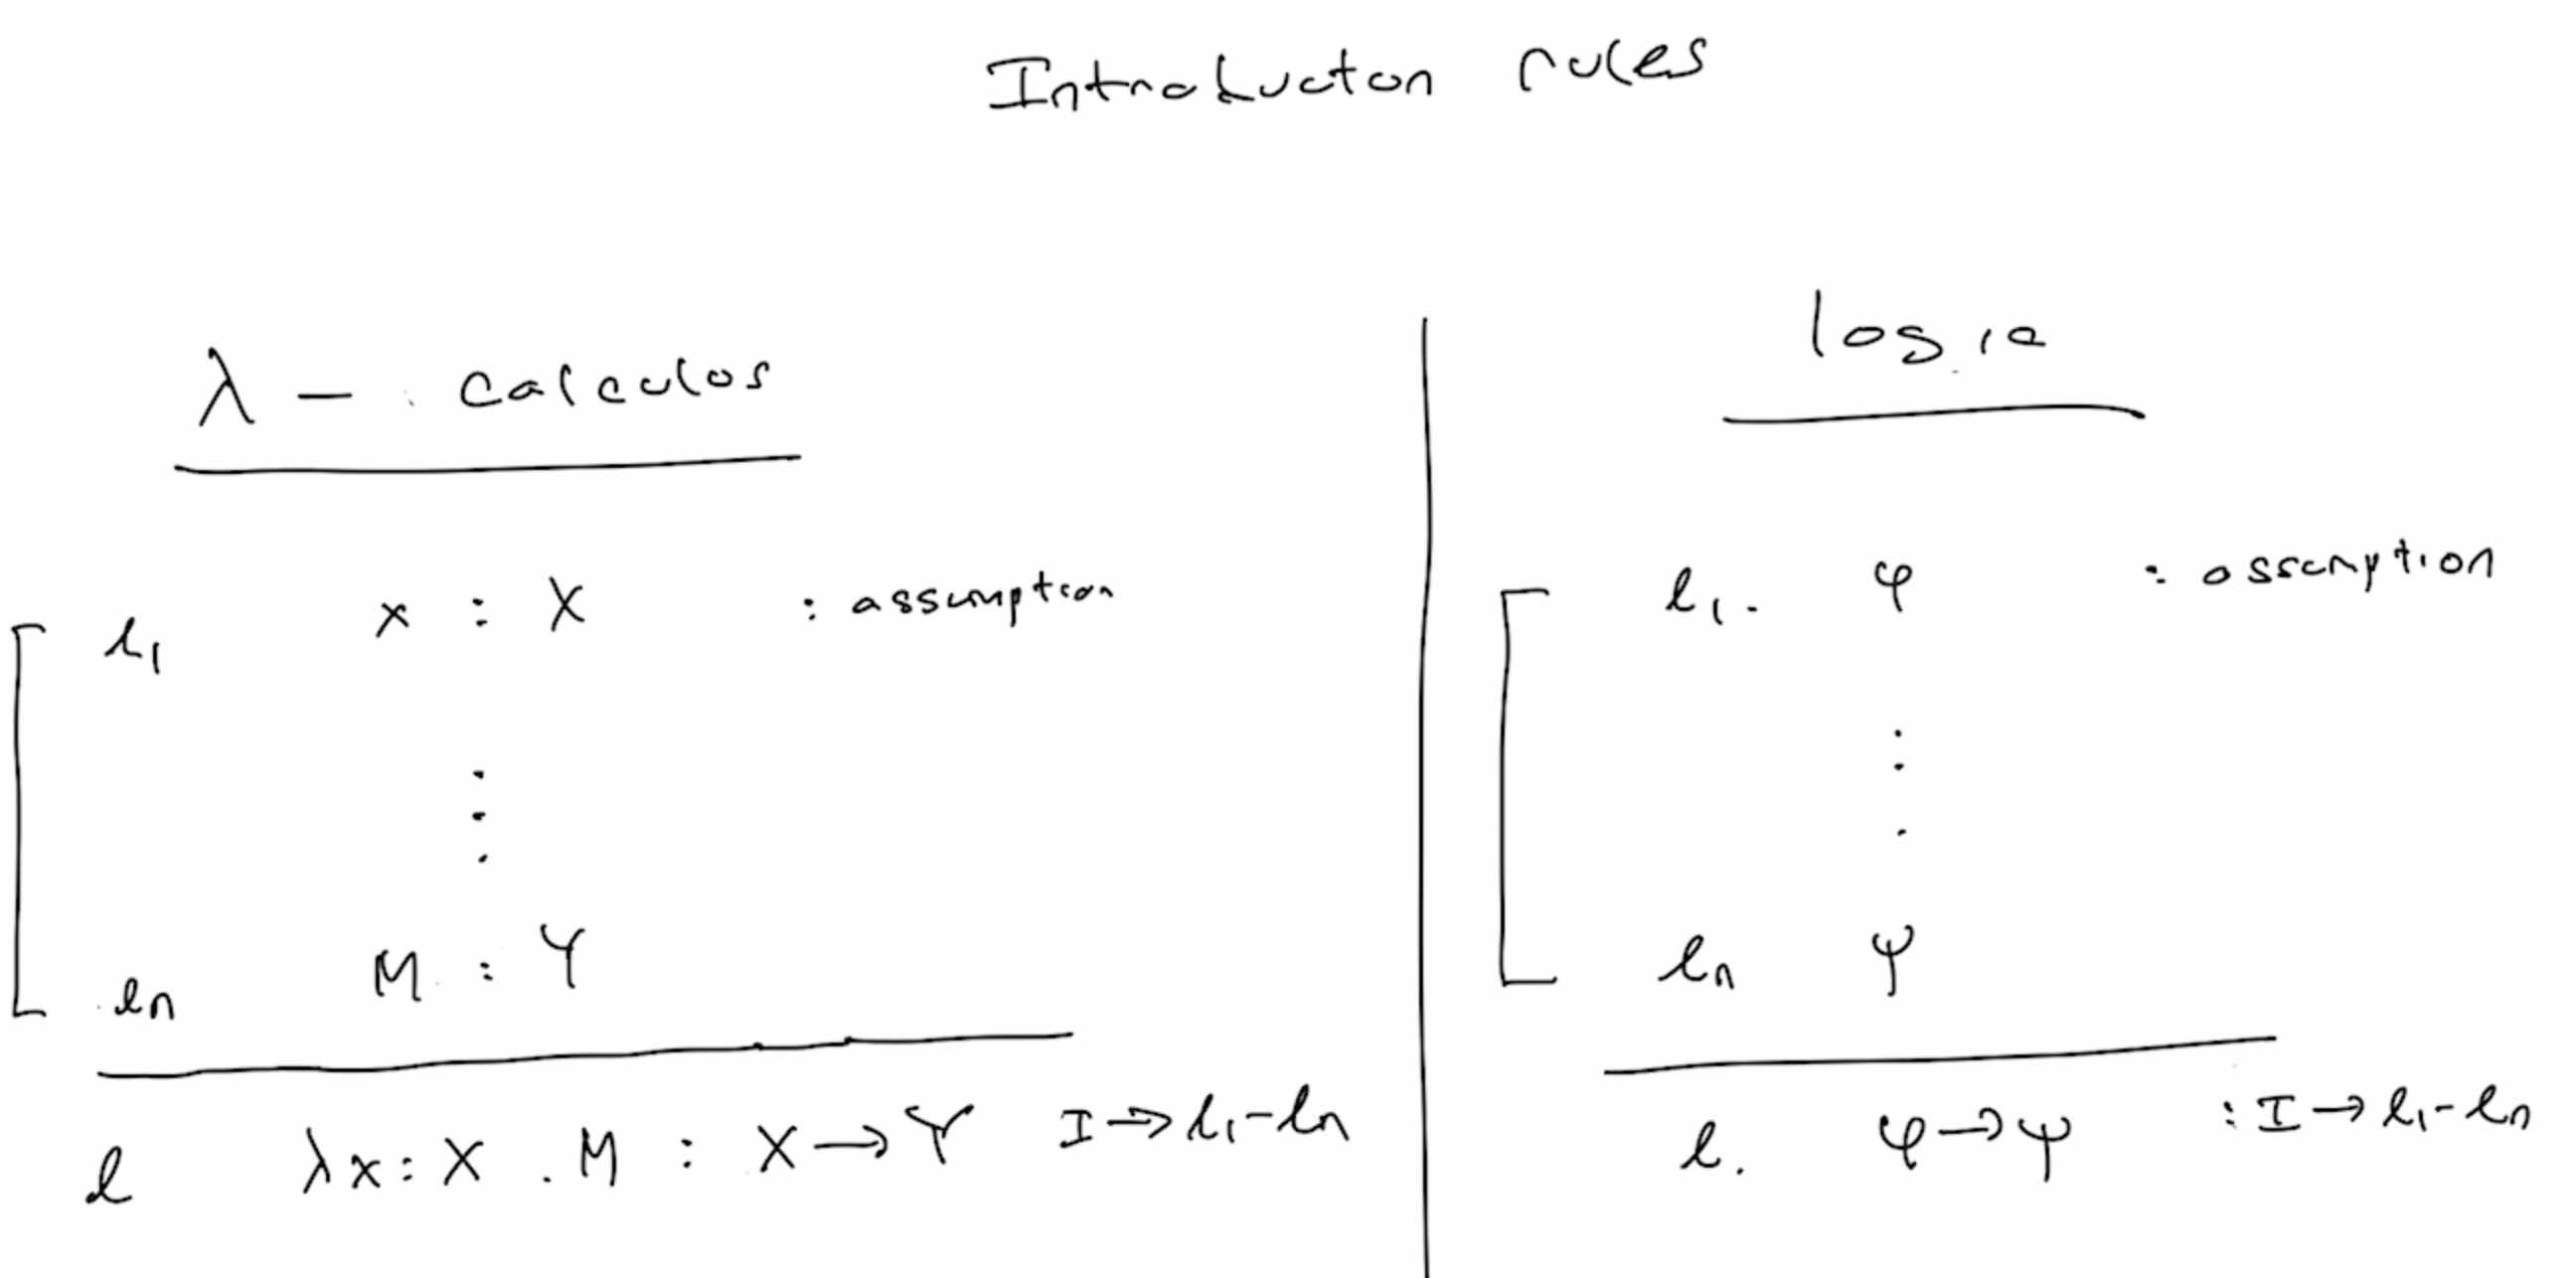 Introducton rules
λ - calculos
l₁ x : X : assumption
⋮
lₙ M : Y
l λx:X . M : X → Y I→ l₁-lₙ
logic
l₁. φ : assumption
⋮
lₙ ψ
l. φ → ψ : I→ l₁-lₙ